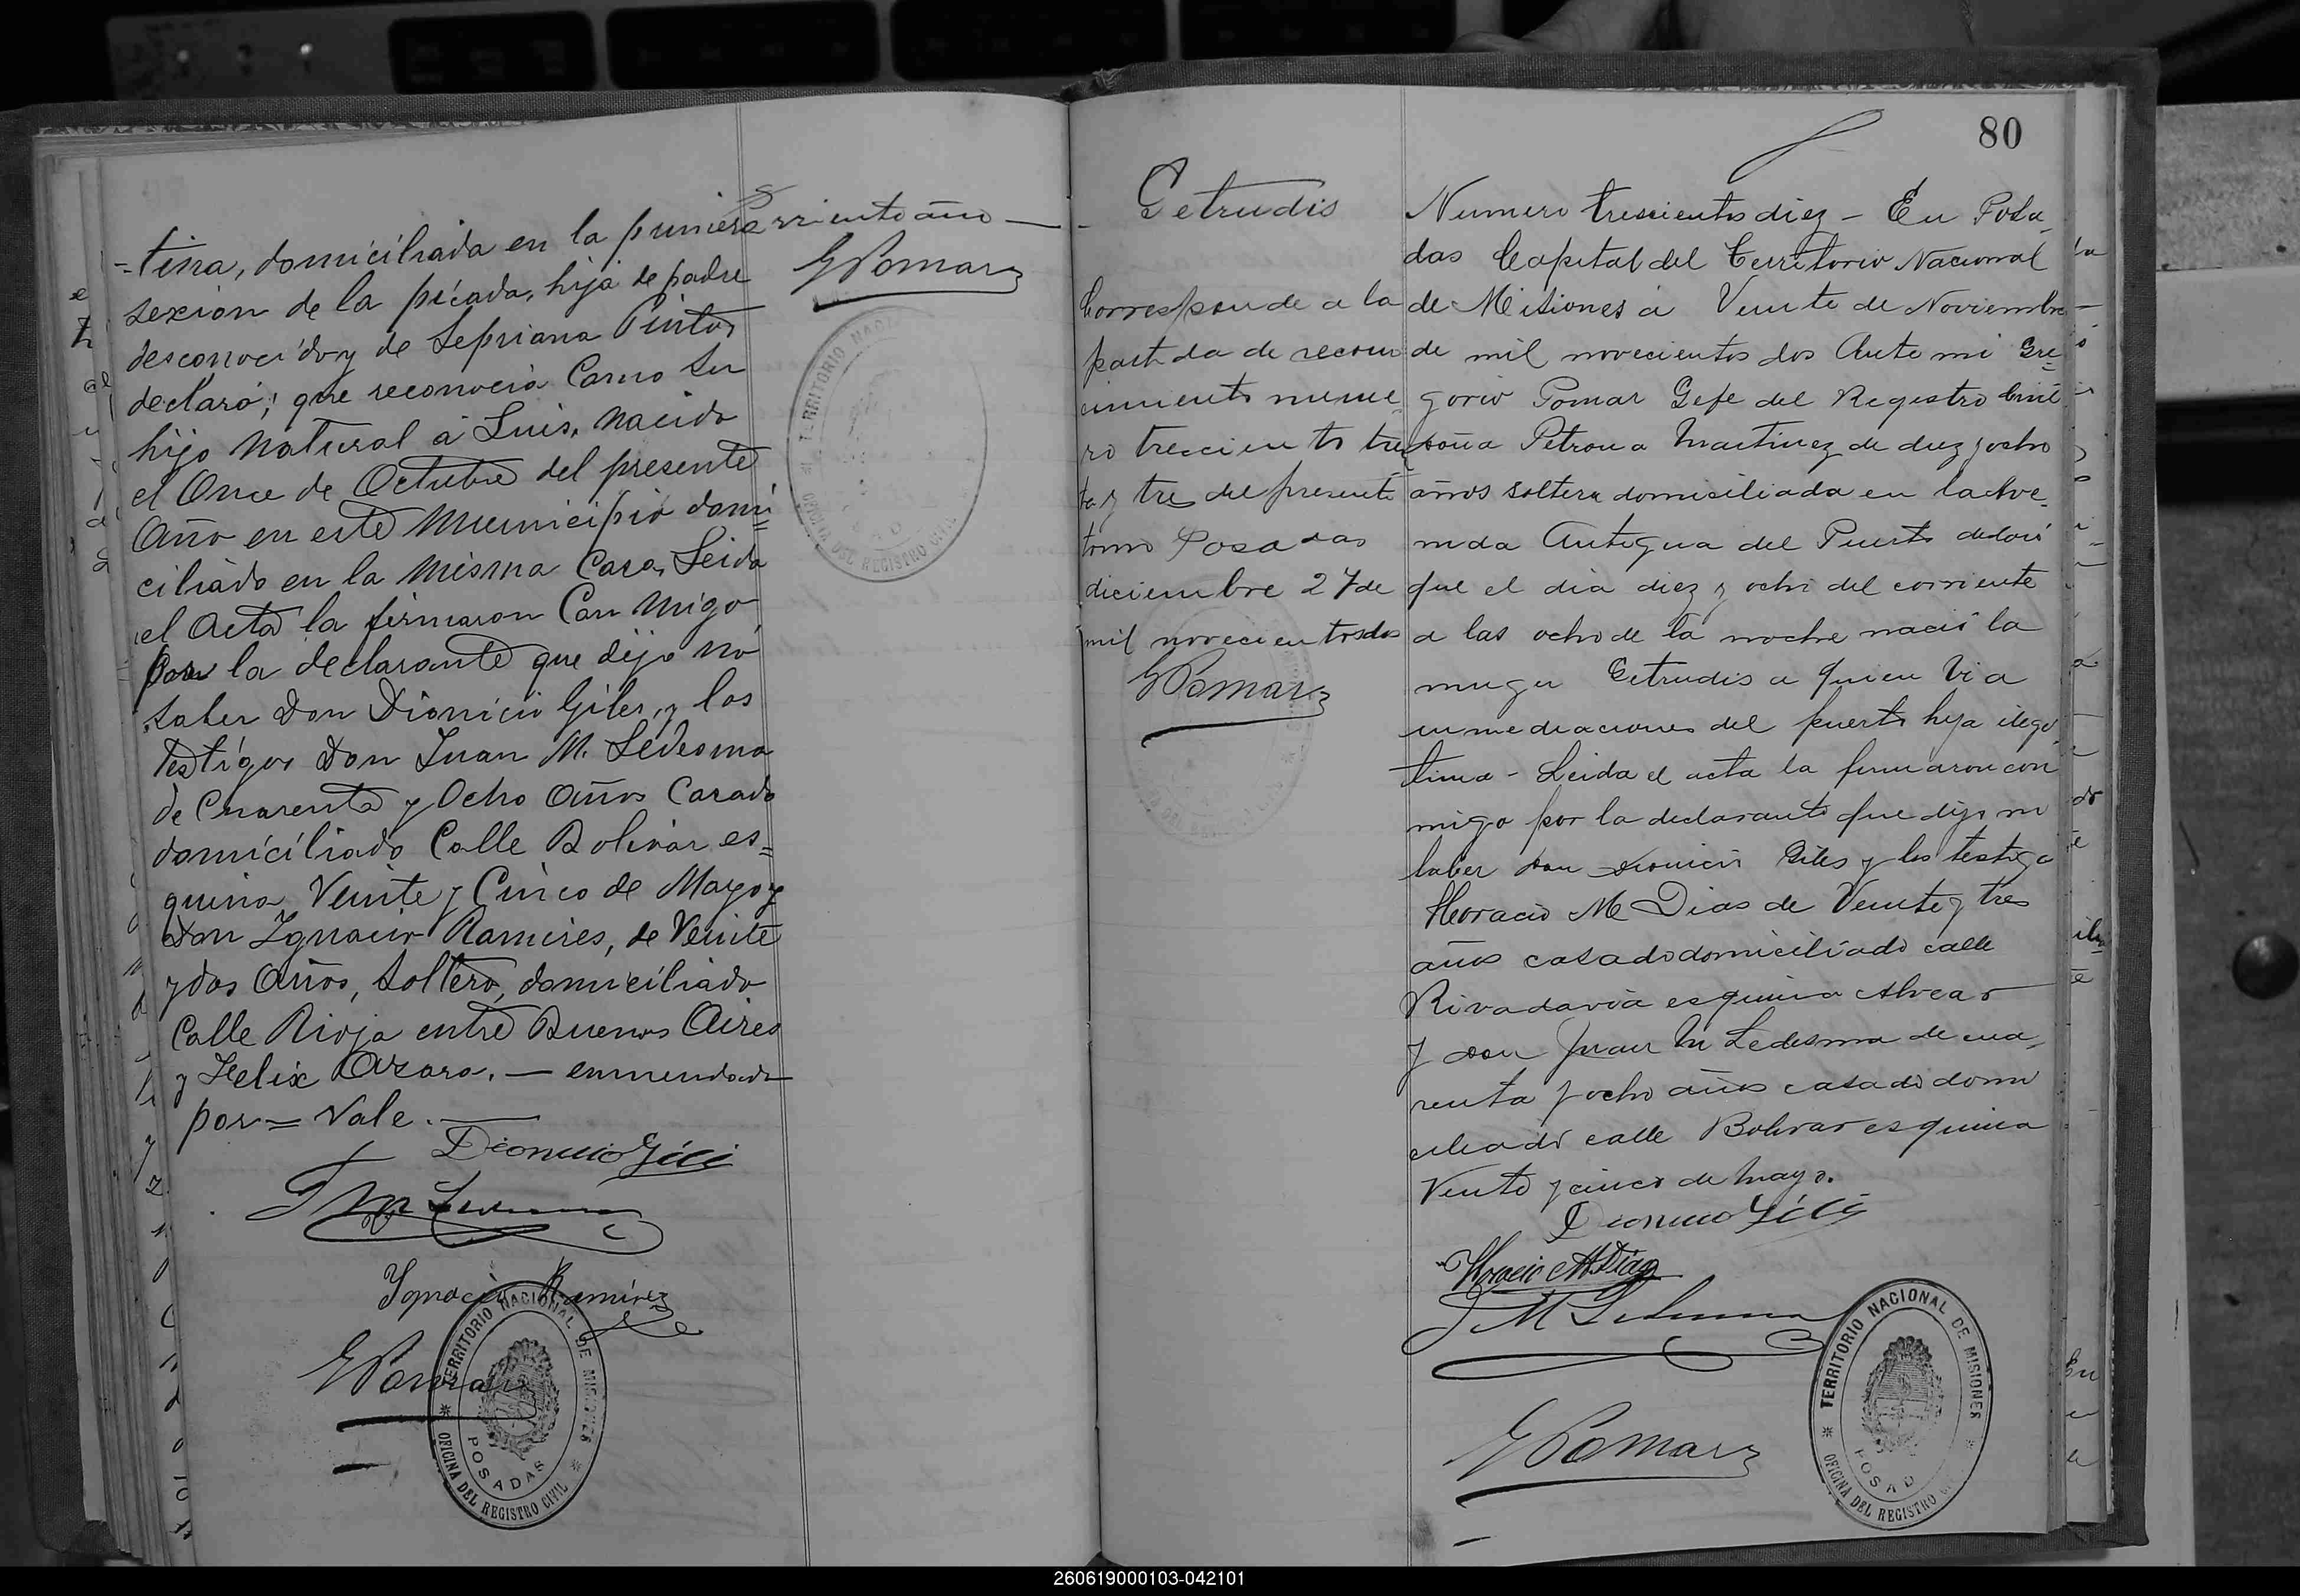 -tina, domiciliada en la primera
sexion de la picada, hija de padre
desconocido y de Sepriana Pintos
declaró; que reconocia Como su
hijo Natural á Luis, Nacido
el Once de Octubre del presente
Año en este Municipio domi=
ciliado en la Misma Casa, Leida
el Acta la firmaron Con Migo
por la declarante que dijo no
saber Don Dionicio Giles, y los
testigos Don Juan M. Ledesma
de Cuarenta y Ocho Años Casado
domiciliado Calle Bolivar es=
quina Veinte y Cinco de Mayo y
Don Ignacio Ramires, de Veinte
y dos Años, Soltero, domiciliado
Calle Rioja entre Buenos Aires
y Felix Azara. — enmendado
por = Vale. —
Dionicio Gili
J M Ledesma
Ignacio Ramírez
G Pomar
TERRITORIO NACIONAL DE MISIONES
POSADAS
OFICINA DEL REGISTRO CIVIL
rriente año —
G Pomar
TERRITORIO NACI
OFICINA DEL REGISTRO CIVIL
80
Getrudis
Corresponde a la
partida de recono
cimiento nume
ro trecciento trein
ta y tres del presente
tomo Posadas
diciembre 27 de
mil novecientos dos
G Pomar
Numero trescientos diez – En Posa
das Capital del Territorio Nacional
de Misiones á Veinte de Noviembre
de mil novecientos dos Ante mi Gre=
gorio Pomar Gefe del Registro Civil
doña Petrona Martinez de diez y ocho
años soltera domisiliada en la Ave=
nida Antigua del Puerto declaró
que el dia diez y ocho del corriente
a las ocho de la noche nació la
muger Getrudis a quien Vi a
inmediaciones del puerto hija ilegi
tima – Leida el acta la firmaron con
migo por la declarante que dijo no
saber don Dionicio Giles y los testigo
Horacio M Dias de Veinte y tres
años casado domiciliado calle
Rivadavia esquina Alvear
y don Juan M Ledesma de cua,
renta y ocho años casado domi
ciliado calle Bolivar esquina
Veinte y cinco de Mayo.
Dionicio Gili
Horacio M Diaz
J M Ledesma
G Pomar
TERRITORIO NACIONAL DE MISIONES
POSAD
OFICINA DEL REGISTRO
260619000103-042101